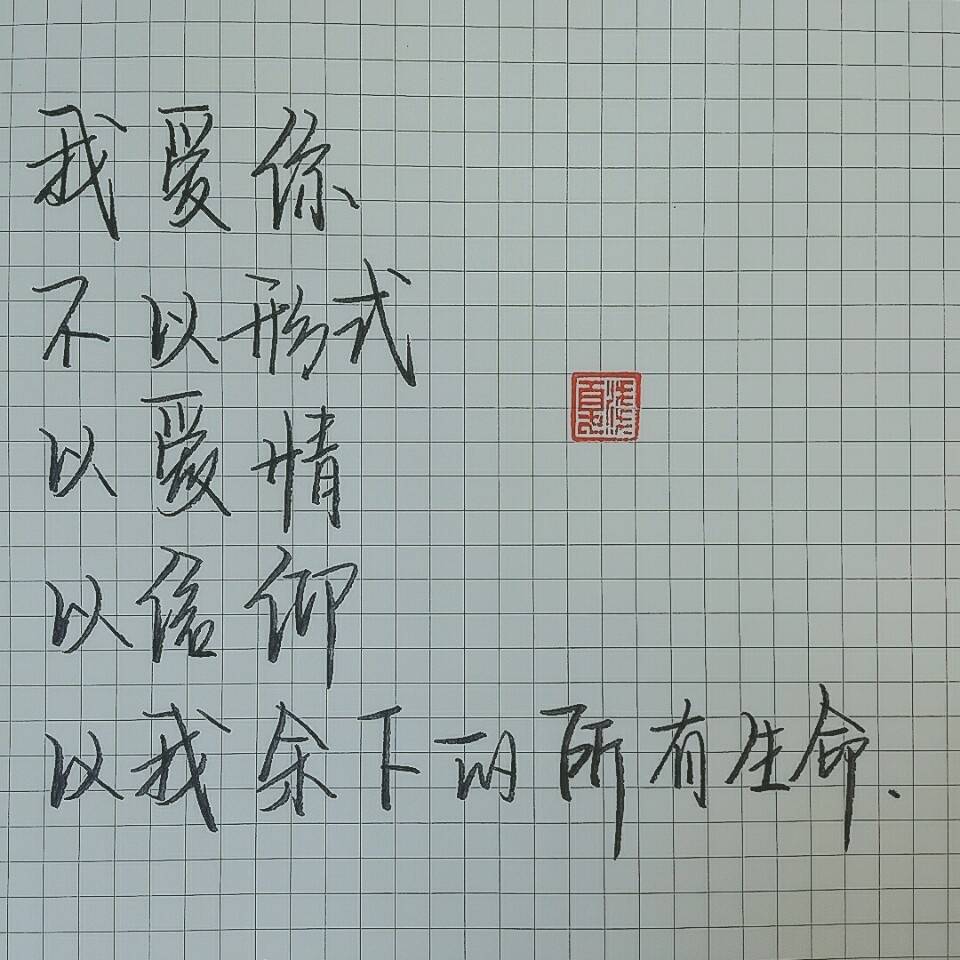 我爱你
不以形式
以爱情
以信仰
以我余下的所有生命.